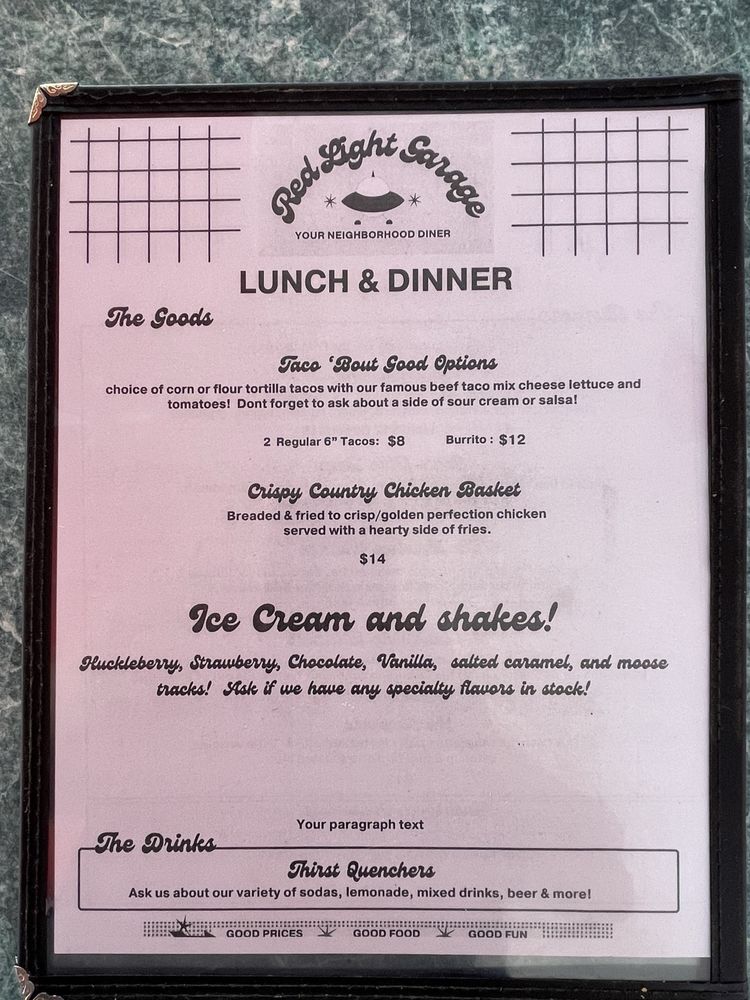 Red Light Garage
YOUR NEIGHBORHOOD DINER
LUNCH & DINNER
The Goods
Taco ‘Bout Good Options
choice of corn or flour tortilla tacos with our famous beef taco mix cheese lettuce and
tomatoes! Dont forget to ask about a side of sour cream or salsa!
2 Regular 6” Tacos: $8 Burrito : $12
Crispy Country Chicken Basket
Breaded & fried to crisp/golden perfection chicken
served with a hearty side of fries.
$14
Ice Cream and shakes!
Huckleberry, Strawberry, Chocolate, Vanilla, salted caramel, and moose
tracks! Ask if we have any specialty flavors in stock!
Your paragraph text
The Drinks
Thirst Quenchers
Ask us about our variety of sodas, lemonade, mixed drinks, beer & more!
GOOD PRICES GOOD FOOD GOOD FUN